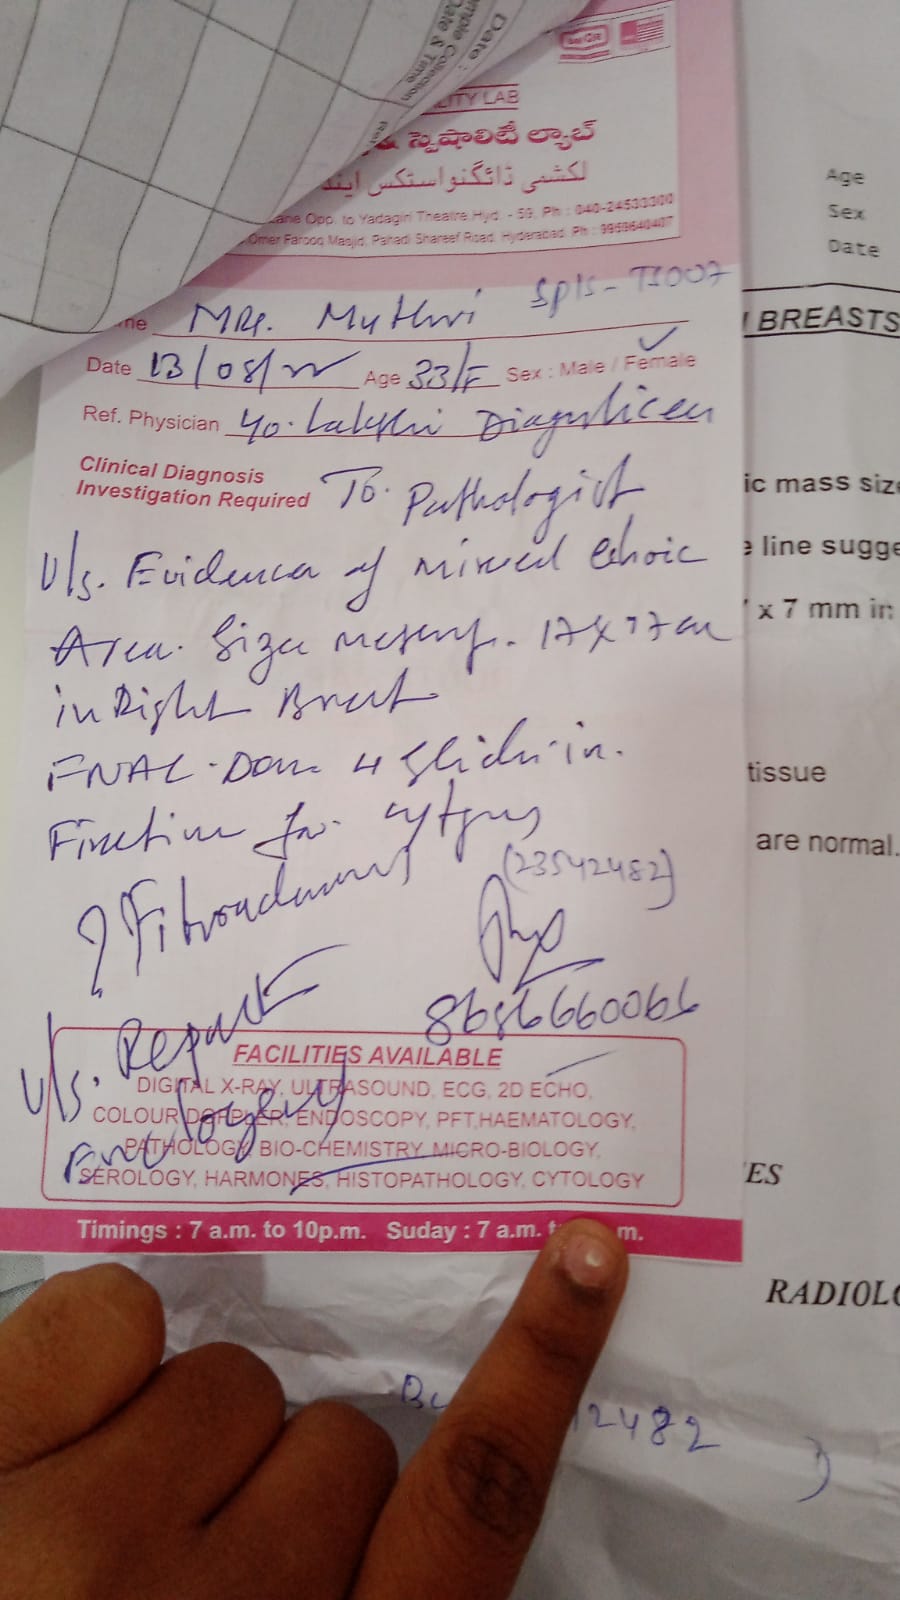 Date :
Sample Collection
Date & Time
Ref.
LITY LAB
స్పెషాలిటీ ల్యాబ్
لکشمی ڈائگنواستکس اینڈ
Lane Opp. to Yadagiri Theatre Hyd. - 59. Ph : 040-24533300
Omer Farooq Masjid, Pahadi Shareef Road, Hyderabad. Ph : 9959640407
Spls-TS007
me Mrs. Mythri
Date 13/08/22 Age 33/F Sex : Male / Female
Ref. Physician Diagnostices
Clinical Diagnosis
Investigation Required To. Pathologist
U/s. Evidence of mixed Echoic
Area. Size 17X
in Right Breast
FNAC - Done 4 Slides in.
for.
(23542482)
? Fibroadenoma
8686660066
U/s. Report
FACILITIES AVAILABLE
DIGITAL X-RAY, ULTRASOUND, ECG, 2D ECHO,
COLOUR DOPPLER, ENDOSCOPY, PFT,HAEMATOLOGY,
PATHOLOGY, BIO-CHEMISTRY, MICRO-BIOLOGY,
SEROLOGY, HARMONES, HISTOPATHOLOGY, CYTOLOGY
Timings : 7 a.m. to 10p.m. Suday : 7 a.m. m.
12482
Age
Sex
Date
BREASTS
ic mass size
line sugge
x 7 mm in
tissue
are normal.
ES
RADIOLO